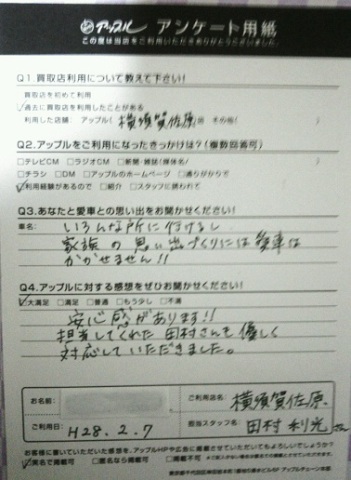 アップル アンケート用紙
この度は当店をご利用いただきありがとうございました。
Q1.買取店利用について教えて下さい!
□買取店を初めて利用
☑過去に買取店を利用したことがある
利用した店舗： アップル( 横須賀佐原 店 その他( )
Q2.アップルをご利用になったきっかけは?(複数回答可)
□テレビCM □ラジオCM □新聞・雑誌(媒体名/ )
□チラシ □DM □アップルのホームページ □通りがかり
☑利用経験があるので □紹介 □スタッフに誘われて
Q3.あなたと愛車との思い出をお聞かせください!
車名： いろんな所に行けるし
家族の思い出づくりには愛車は
かかせません!!
Q4.アップルに対する感想をぜひお聞かせください!
☑大満足 □満足 □普通 □もう少し □不満
安心感があります!!
担当してくれた田村さんも優しく
対応していただきました。
お名前：
ご利用店名： 横須賀佐原
ご利用日： H28.2.7
担当スタッフ名： 田村 利光
お客様に書いていただいた感想を、アップルHPや広告に掲載させていただいてもよろしいでしょうか?
☑実名で掲載可 □匿名なら掲載可 □掲載不可